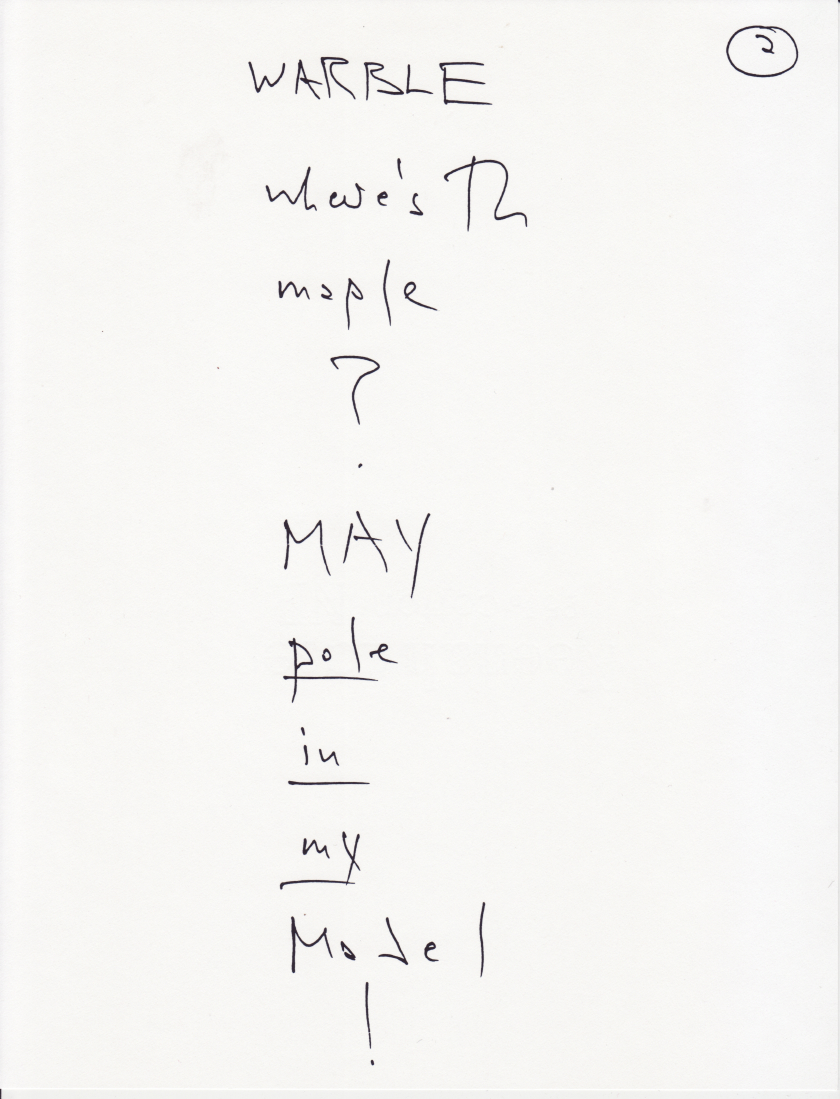 2
WARBLE
where's Th
maple
?
MAY
pole
in
my
Model
!